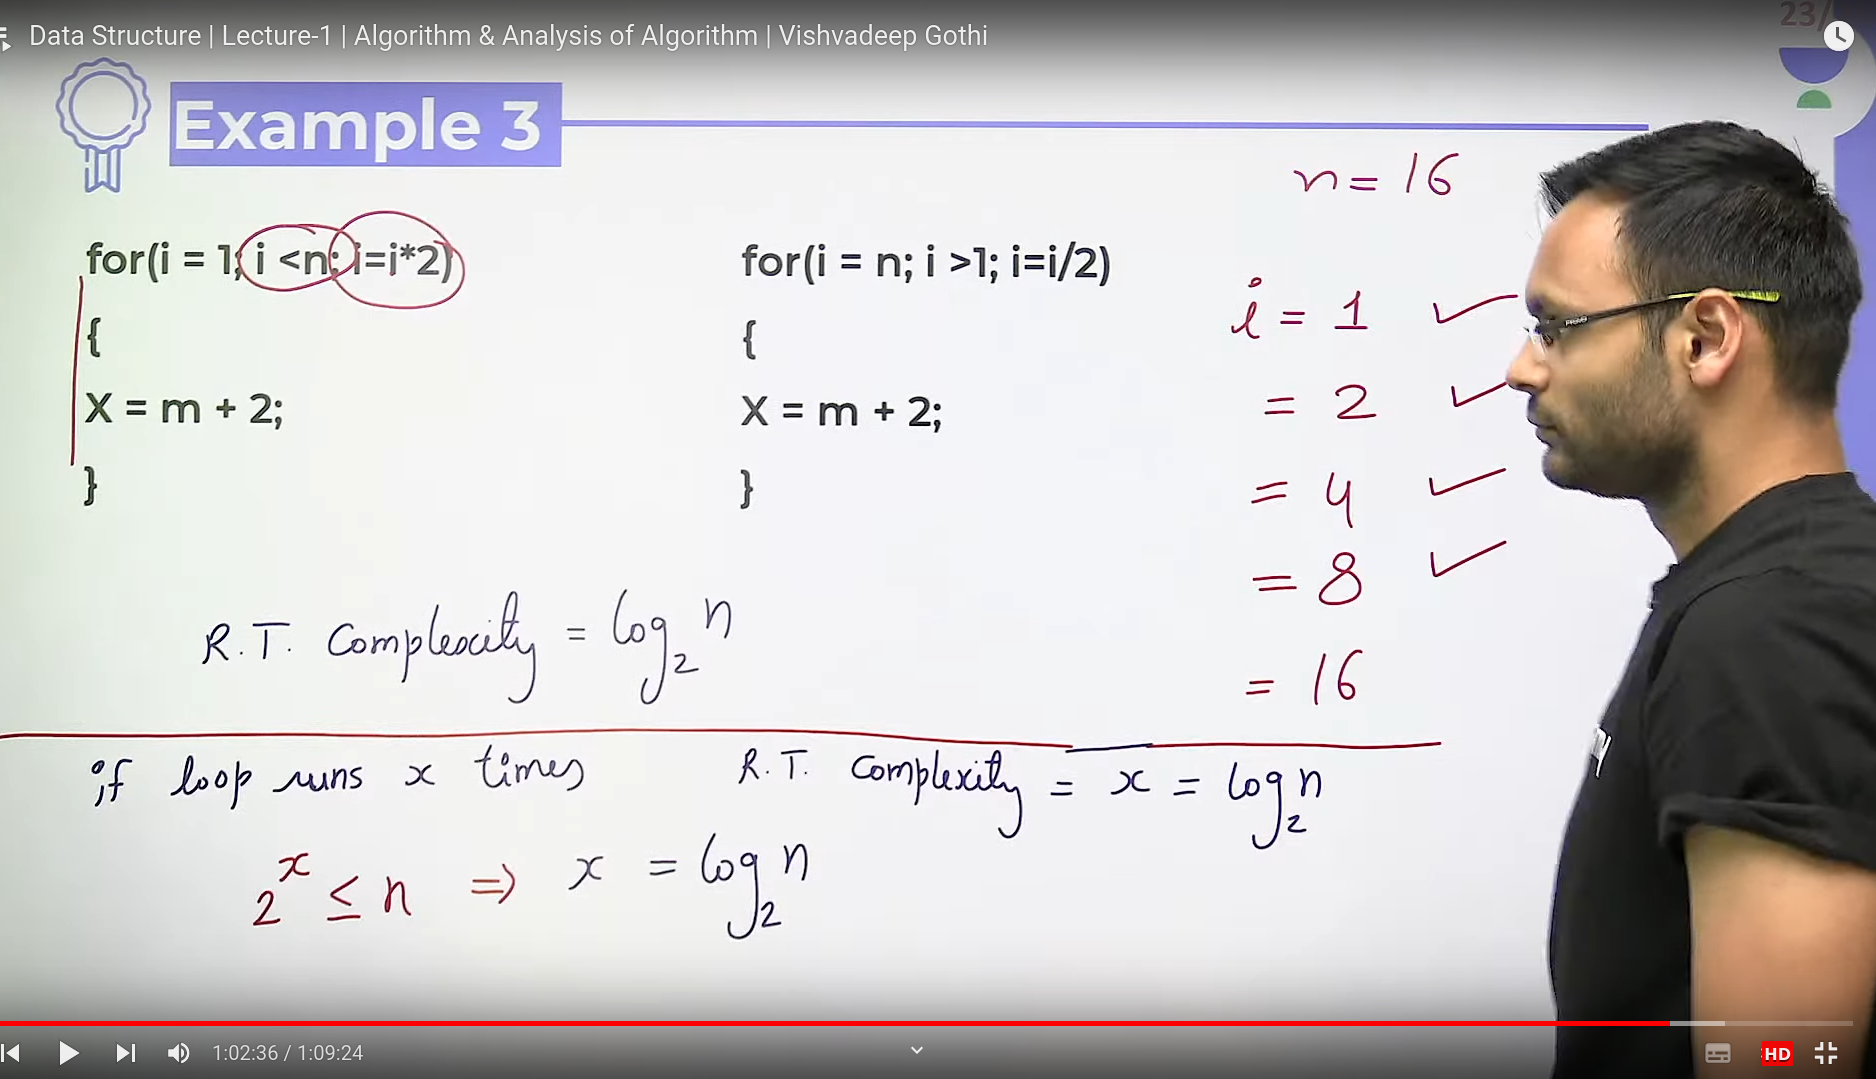 Data Structure | Lecture-1 | Algorithm & Analysis of Algorithm | Vishvadeep Gothi
23/
Example 3
n = 16
for(i = 1; i <n; i=i*2)
{
X = m + 2;
}
for(i = n; i >1; i=i/2)
{
X = m + 2;
}
i = 1 ✓
= 2 ✓
= 4 ✓
= 8 ✓
= 16
R.T. Complexity = log₂ n
if loop runs x times
R.T. Complexity = x = log₂ n
2ˣ ≤ n ⇒ x = log₂ n
1:02:36 / 1:09:24
HD